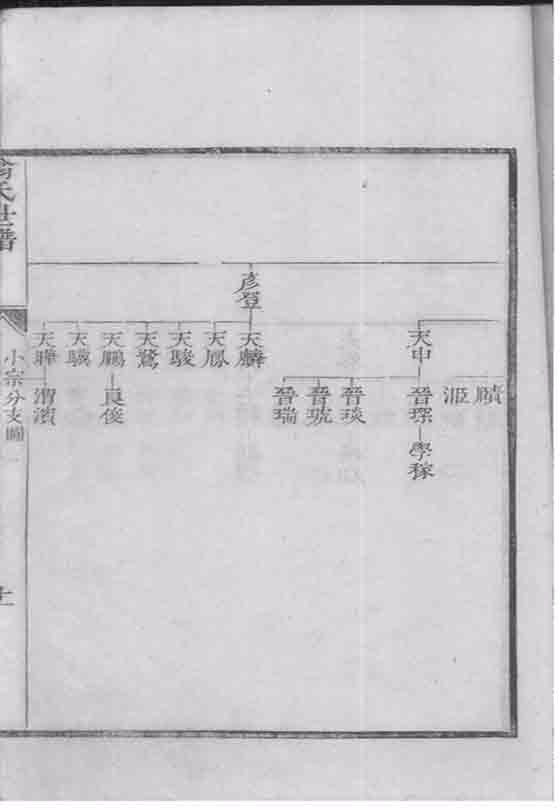 彥登
天中
天麟
天鳳
天駿
天鷺
天鵬
天驥
天驊
賾
洍
晉琛
學稼
晉琰
晉琥
晉瑞
良俊
渭濱
氏世譜
小宗分支圖一